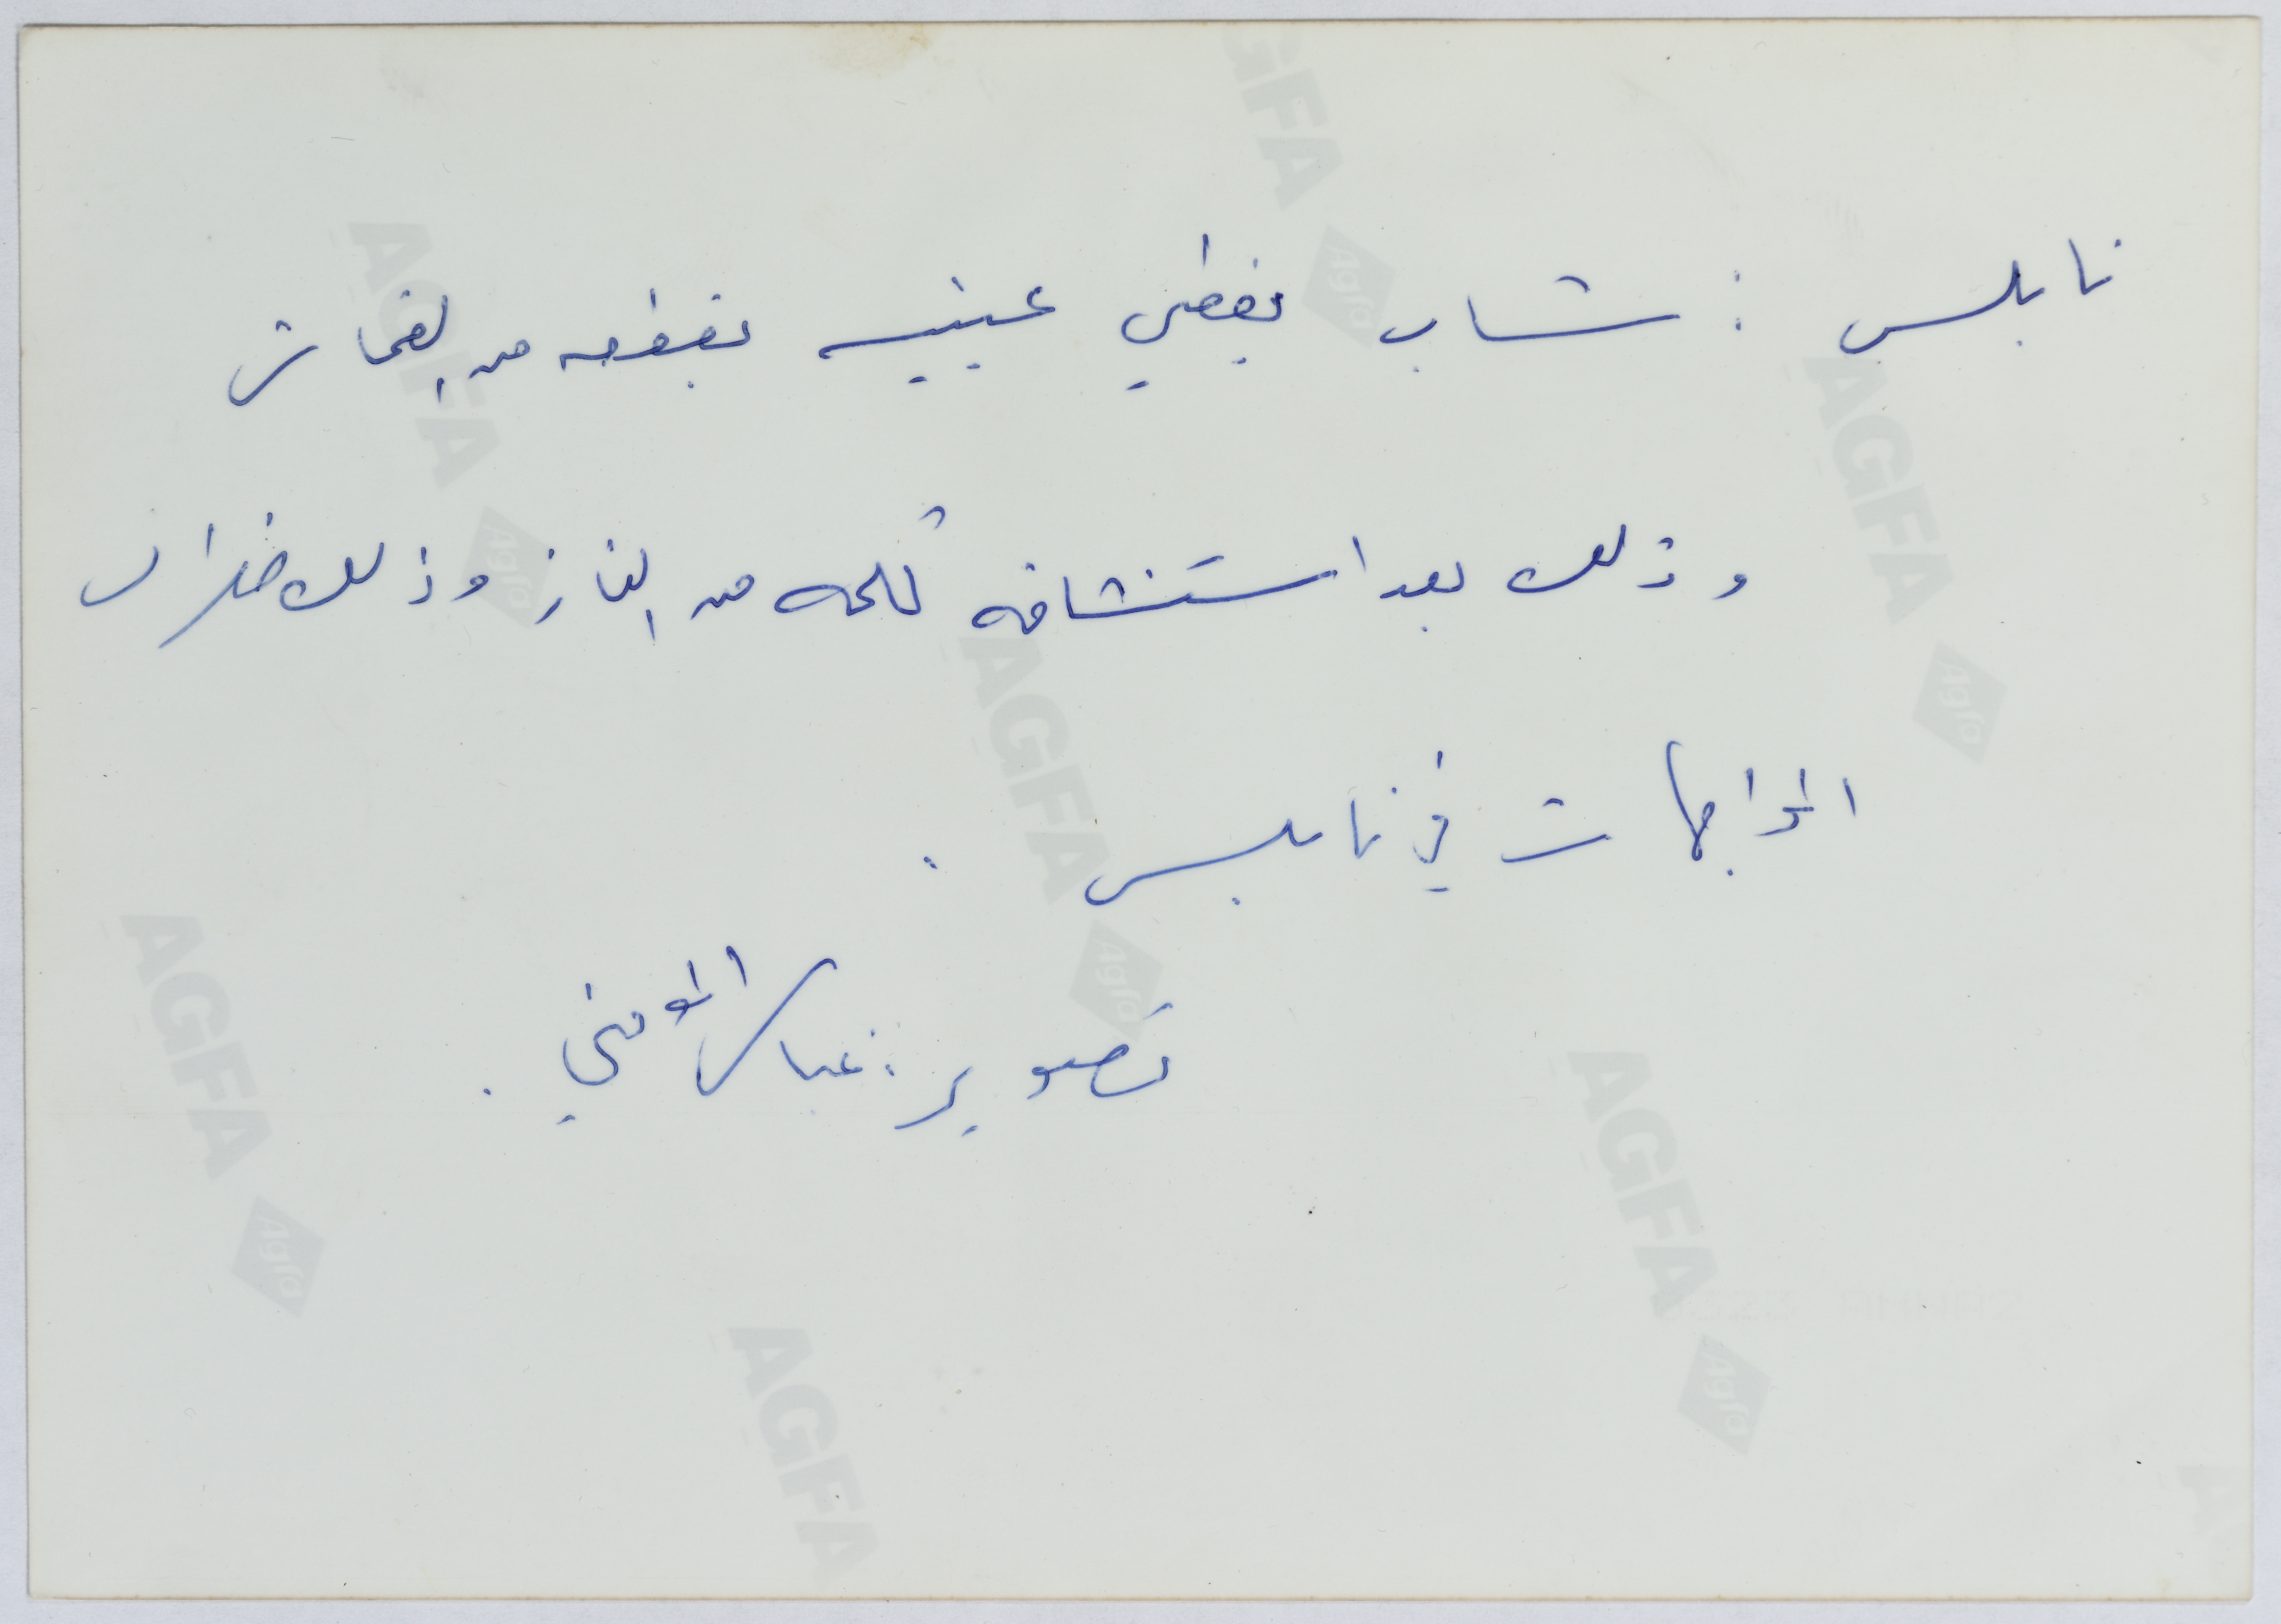 نابلس : شاب يغطي عينيه بقطعه من القماش
وذلك بعد استنشاقه للغاز وذلك خلال
المواجهات في نابلس .
تصوير : عباس المومني .
AGFA
Agfa